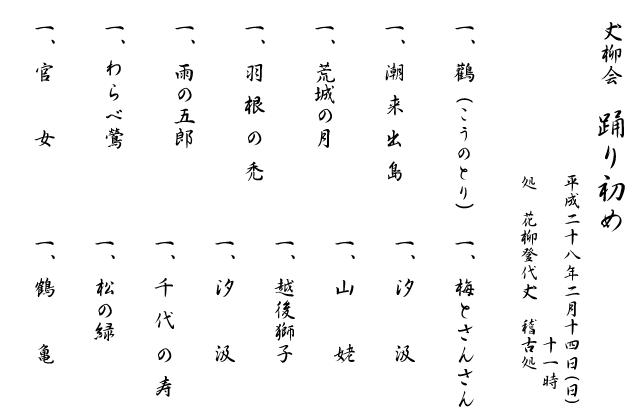 𠀋柳会　踊り初め
平成二十八年二月十四日(日)
十一時
処　花柳登代𠀋　稽古処
一、鸛(こうのとり)
一、潮来出島
一、荒城の月
一、羽根の禿
一、雨の五郎
一、わらべ鶯
一、官女
一、梅とさんさん
一、汐汲
一、山姥
一、越後獅子
一、汐汲
一、千代の寿
一、松の緑
一、鶴亀